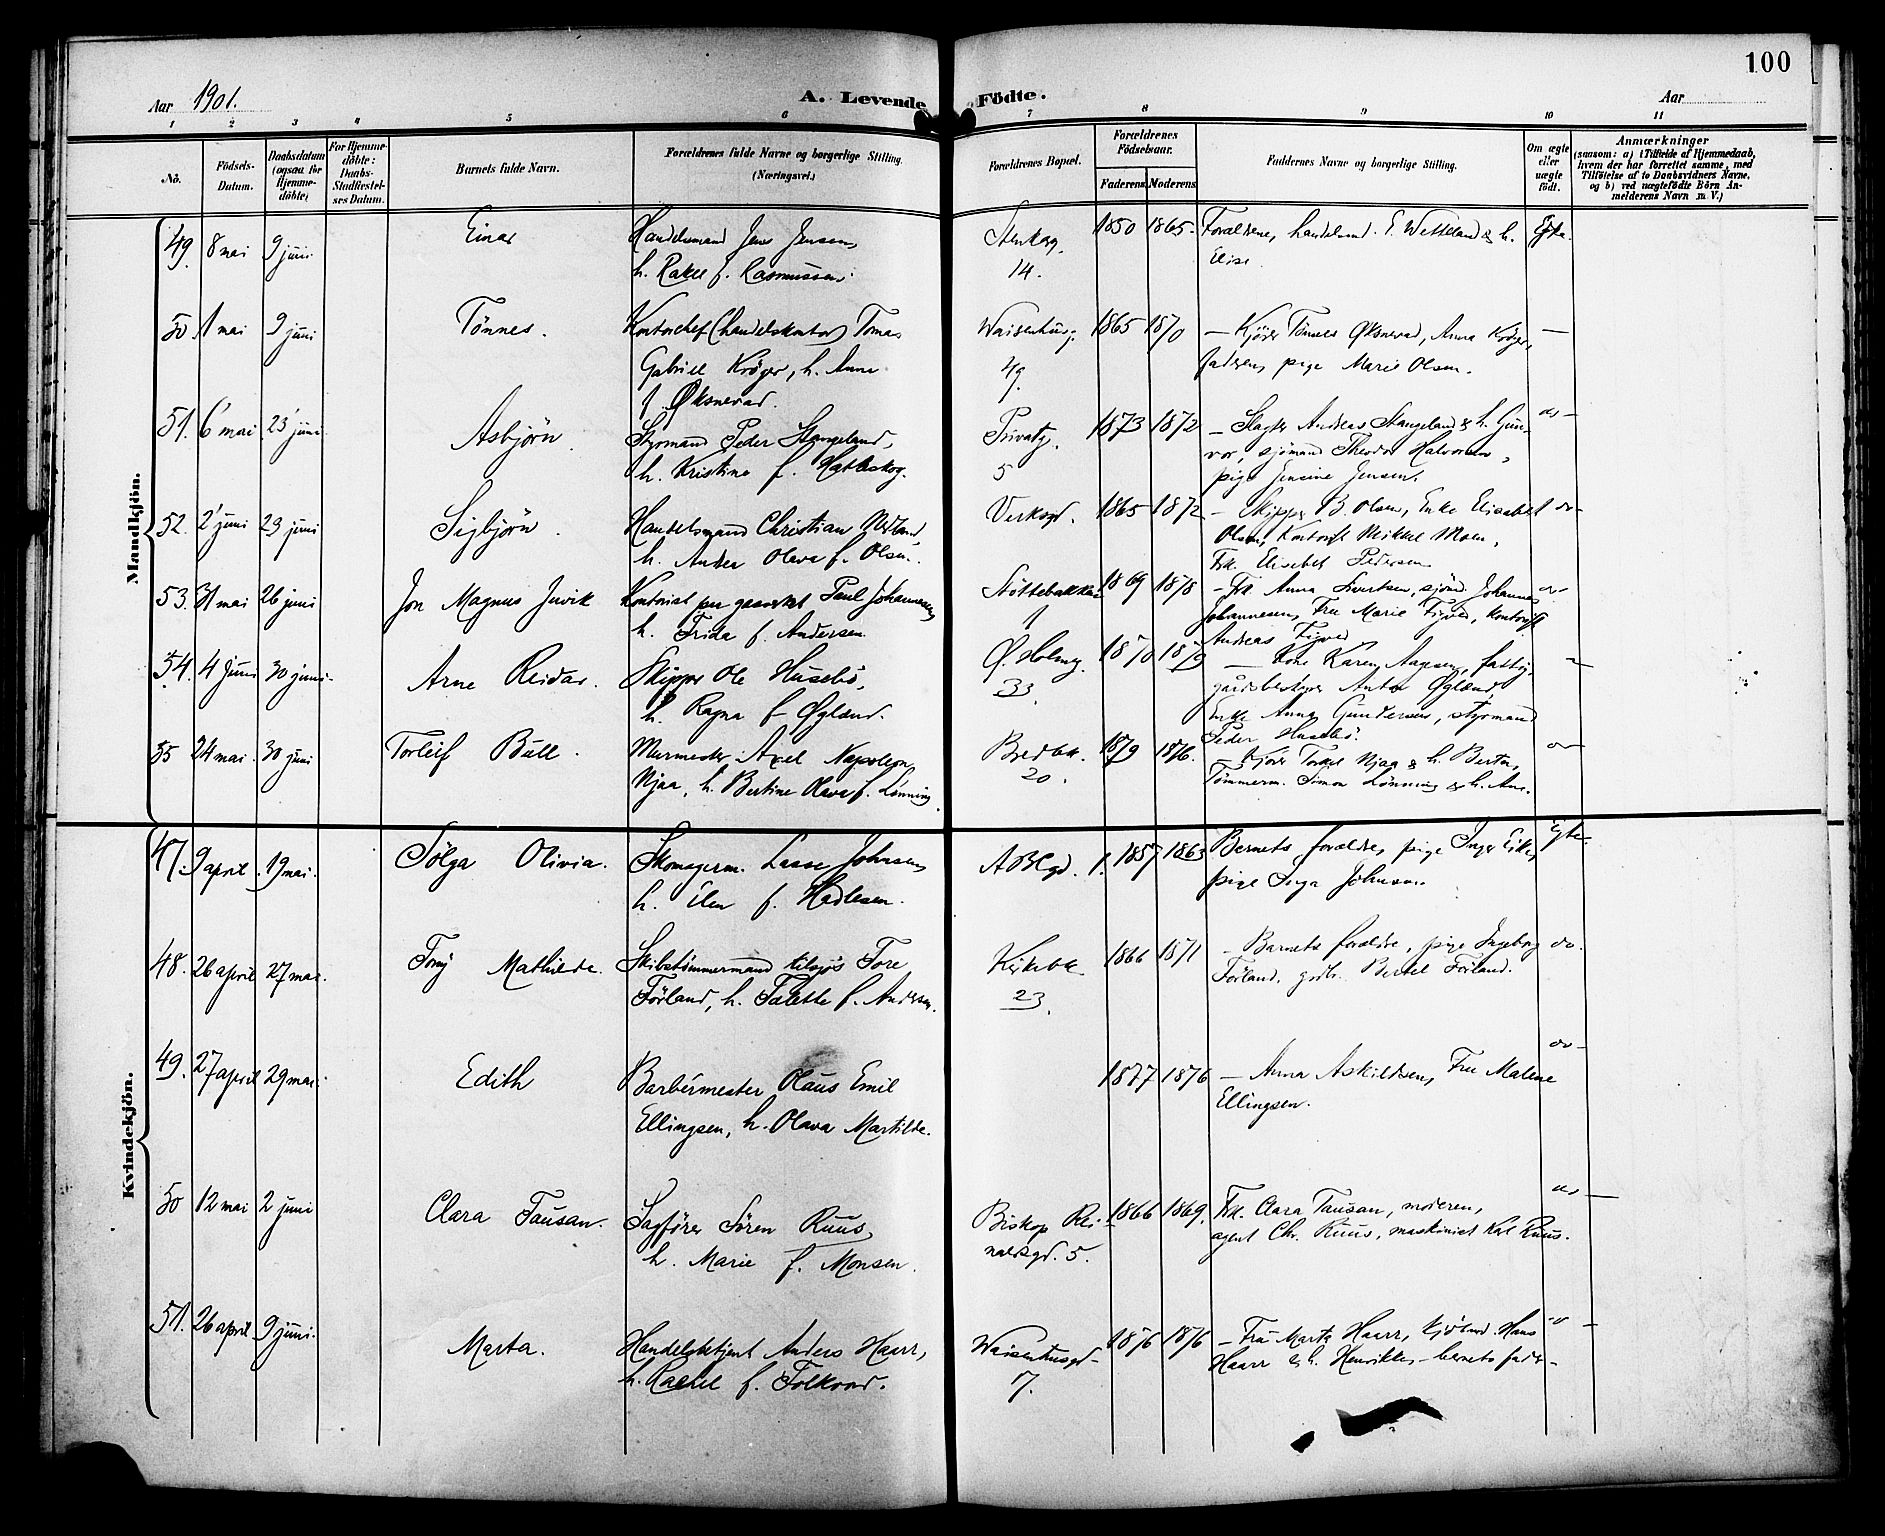 100
Aar 1901.
A. Levende Födte.
Aar
1 2 3 4 5 6 7 8 9 10 11
No.
Födsels-Datum.
Daabsdatum (ogsaa for Hjemmedöbte)
For Hjemmedöbte: Daabs-Stadfæstelses Datum.
Barnets fulde Navn.
Forældrenes fulde Navne og borgerlige Stilling.
(Næringsvei.)
Forældrenes Bopæl.
Forældrenes Födselsaar.
Faderens Moderens
Faddernes Navne og borgerlige Stilling.
Om ægte eller uægte födt.
Anmærkninger
(saasom: a) i Tilfælde af Hjemmedaab,
hvem der har forrettet samme, med
Tilföielse af to Daabsvidners Navne,
og b) ved uægtefödte Börn An-
melderens Navn m. V.)
Mandkjön.
49. 8 mai 9 juni Einar Handelsmand Jens Jensen, 1850 1865. Forældrene, handelsmd. E. Wetteland & h. Egte.
h. Rakel f. Rasmussen. 14. Elise.
50. 1 mai 9 juni Tönnes. Kontorchef (handelskontor) Tomas Waisenhusg. 1865 1870 — Kjörer Tönnes Øksnevad, Anna Kröger, —
Gabriel Kröger, h. Anne 49. faderen, pige Marie Olsen.
f. Øksnevad.
51. 6 mai 23 juni Asbjörn. Styrmand Peder Stangeland, Privatg. 1873 1872 — Slagter Andreas Stangeland & h. Gun- do —
h. Kristine f. 5 vor, sjömand Theodor Halvorsen,
pige Jensine Jensen.
52. 2 juni 23 juni Sigbjörn. Handelsmand Christian Verksgd. 1865 1872 — Skipper B. Olsen, Enke Elisabet do —
h. Andrea Olava f. Olsen. Olsen, Kontorist Mikkel Moen,
Frk. Elisabet Pedersen.
53. 31 mai 26 juni Jon Magnus Juvik Kontorist paa gasverket Paul Johannesen, Støttebakken 1869 1878 — Frk. Anna Sivertsen, sjömd. Johannes do —
h. Frida f. Andersen. 1 Johannesen, Fru Marie Tigved, kontorist
Andreas Tigved
54. 4 juni 30 juni. Arne Reidar. Skipper Ole Husebö, Ø. Holmg. 1870 1879 — Kone Karen Aagesen, fattig-
h. Ragna f. Øglænd. 33. gårdsbestyrer Anton Øglænd,
Enke Anna Gundersen, styrmand
Peder Husebö.
55 24 mai. 30 juni Torleif Bull. Murmester Axel Napoleon Bredbak. 1879 1876. — Kjörer Torkel Njaa & h. Berta, do —
Njaa, h. Bertine Olava f. Lönning. 20. Tömmerm. Simon Lönning & h. Ane.
Kvindekjön.
47. 9 april 19 mai. Sölga Olivia. Skomagerm. Lasse Johnsen, 1. 1857 1863 Barnets forældre, pige Inger Eike, Egte.
h. Elen f. Hadlesen. pige Inga Johnsen.
48. 26 april 27 mai. Tony Mathilde. Skibstömmermand tilsjös Tore Kirkebk 1866 1871 — Barnets forældre, pige Ingeborg do.
Förland, h. Talette f. Andersen. 23. Förland, gdbr. Bertel Förland.
49. 27 april 29 mai. Edith Barbérmester Olaus Emil 1877 1876 — Anna Askildsen, Fru Malene do —
Ellingsen, h. Olava Martilde. Ellingsen.
50 12 mai 2 juni Clara Tausan. Sagförer Sören Ruus, Biskop Rei- 1866 1869. Frk. Clara Tausan, moderen, do —
h. Marie f. Monsen. naldsgd. 5. agent Chr. Ruus, maskinist Karl Ruus.
51. 26 april 9 juni. Marta. Handelsbetjent Anders Haarr, Waisenhusgd- 1876 1876 — Fru Marta Haarr, kjöbmd. Hans do —
h. Rachel f. Folkvord. 7. Haarr & h. Henrikke, — barnets fader —